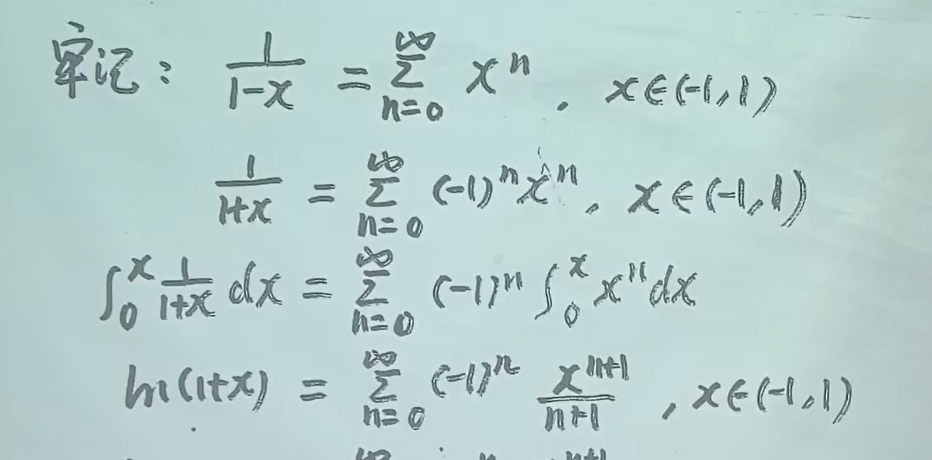 牢记： 1/(1-x) = ∑_{n=0}^{∞} x^n , x∈(-1,1)
1/(1+x) = ∑_{n=0}^{∞} (-1)^n x^n , x∈(-1,1)
∫_0^x 1/(1+x) dx = ∑_{n=0}^{∞} (-1)^n ∫_0^x x^n dx
ln(1+x) = ∑_{n=0}^{∞} (-1)^n x^{n+1}/(n+1) , x∈(-1,1)